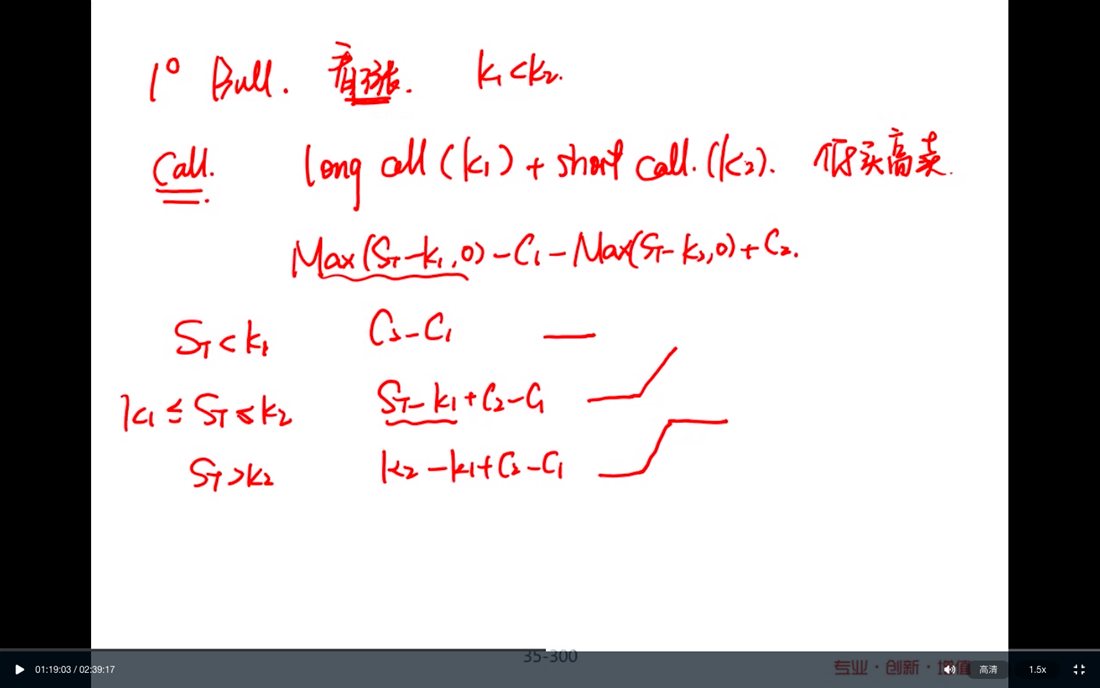 1° Bull. 看涨. K₁<K₂.
Call. long call (K₁) + short call. (K₂). 低买高卖.
Max(S_T-K₁,0)-C₁-Max(S_T-K₂,0)+C₂.
S_T<K₁ C₂-C₁
K₁≤S_T≤K₂ S_T-K₁+C₂-C₁
S_T>K₂ K₂-K₁+C₂-C₁
35-300
专业·创新·增值
01:19:03 / 02:39:17 高清 1.5x